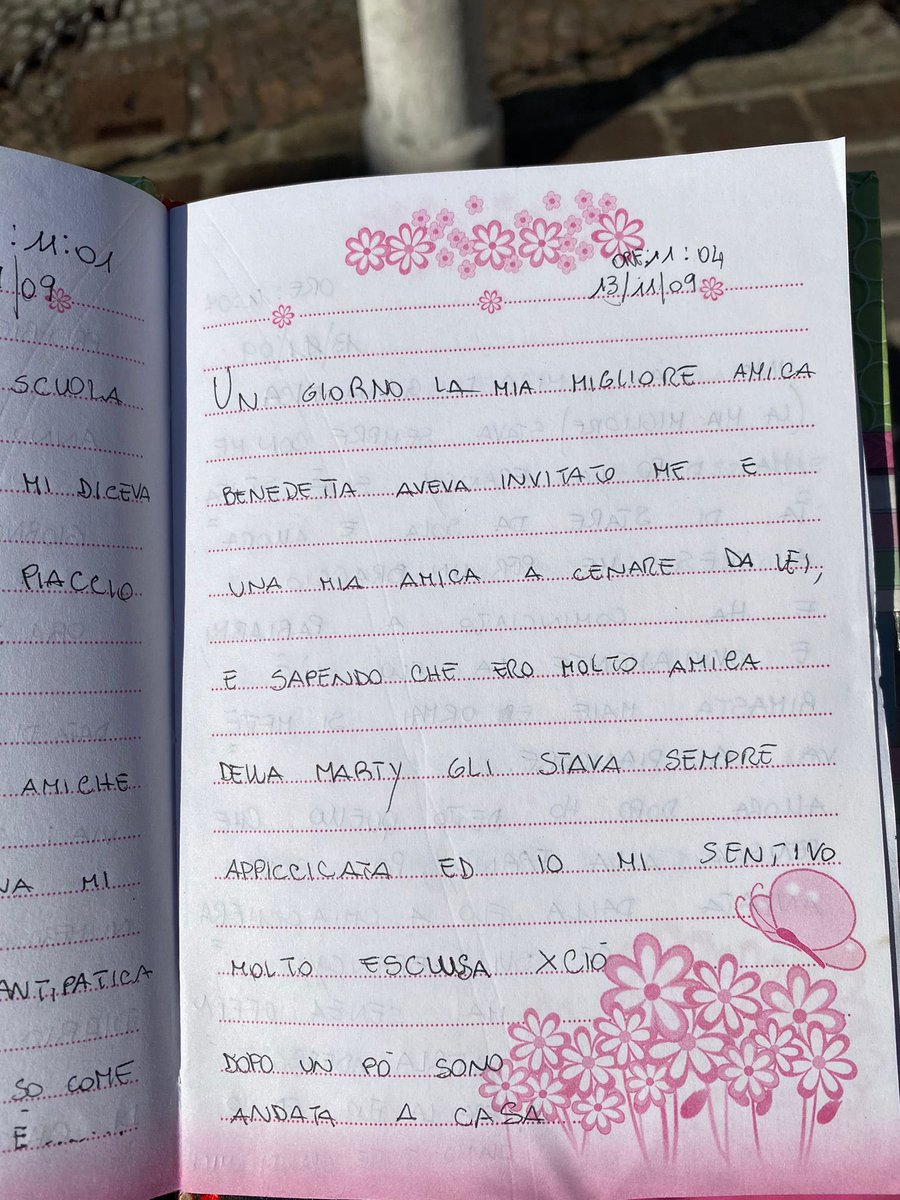 :11:01
/09
SCUOLA
MI DICEVA
PIACCIO
AMICHE
MI
ANTIPATICA
SO COME
È ........
ORE:11:04
13/11/09
UN GIORNO LA MIA MIGLIORE AMICA
BENEDETTA AVEVA INVITATO ME E
UNA MIA AMICA A CENARE DA LEI,
E SAPENDO CHE ERO MOLTO AMICA
DELLA MARTY GLI STAVA SEMPRE
APPICCICATA ED IO MI SENTIVO
MOLTO ESCLUSA XCIÒ
DOPO UN PÒ SONO
ANDATA A CASA